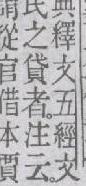 典釋文五經文
民之貸者注云
謂從官借本賈